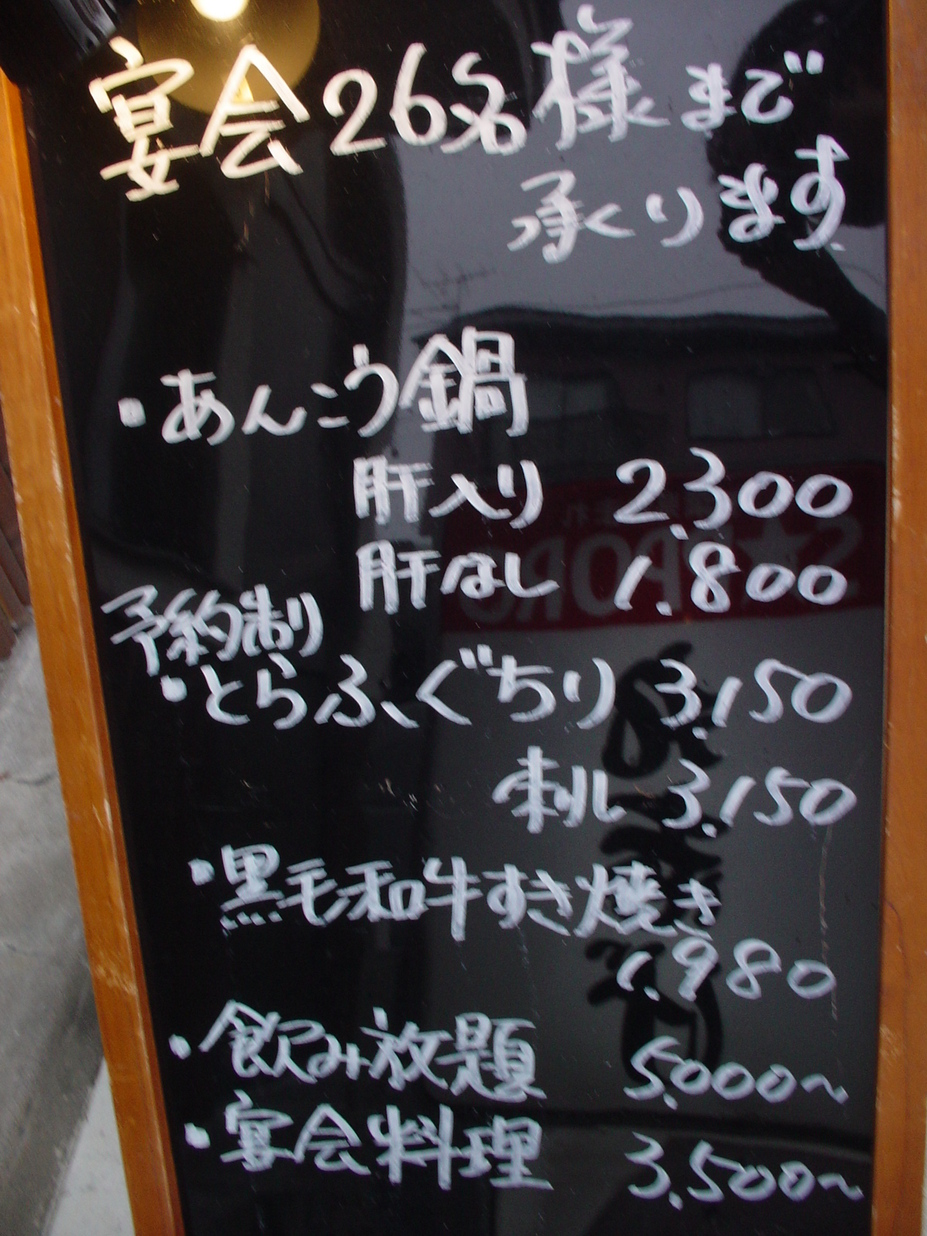 宴会26名様まで
承ります
・あんこう鍋
肝入り 2.300
肝なし 1.800
予約制
・とらふぐちり 3.150
刺し 3.150
・黒毛和牛すき焼き
1.980
・飲み放題 5.000〜
・宴会料理 3.500〜